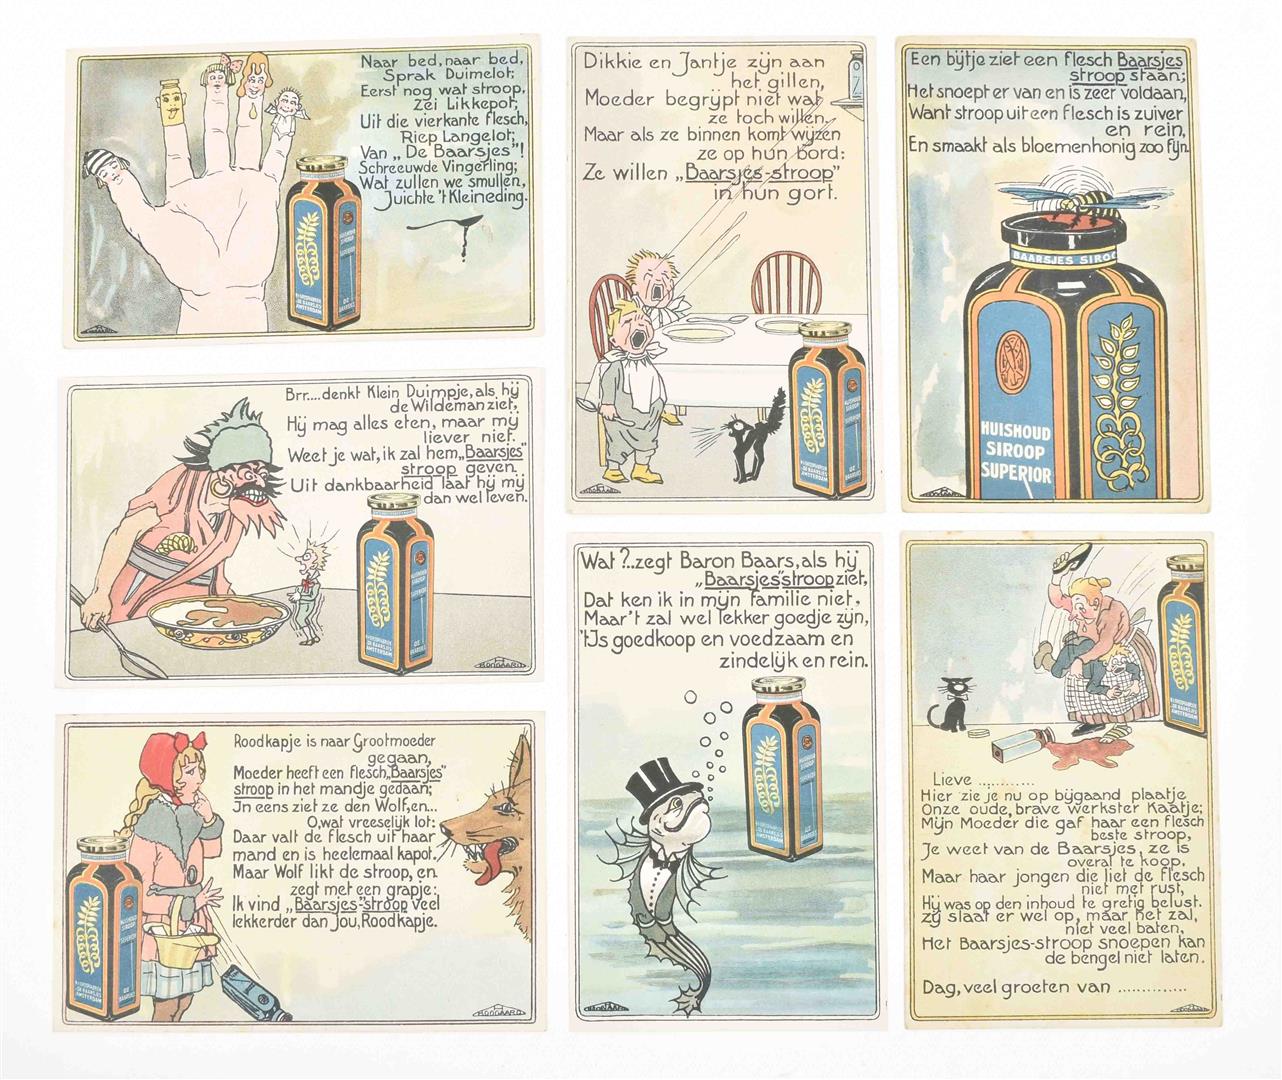 Naar bed, naar bed,
Sprak Duimelot;
Eerst nog wat stroop,
Zei Likkepot;
Uit die vierkante flesch,
Riep Langelot;
Van „De Baarsjes"!
Schreeuwde Vingerling;
Wat zullen we smullen,
Juichte 't Kleineding.
HUISHOUD
SIROOP
SUPERIOR
AMSTERDAM
DE
BAARSJES
Brr....denkt Klein Duimpje, als hij
de Wildeman ziet,
Hij mag alles eten, maar mij
liever niet.
Weet je wat, ik zal hem „Baarsjes"
stroop geven.
Uit dankbaarheid laat hij mij
dan wel leven.
HUISHOUD
SIROOP
SUPERIOR
AMSTERDAM
DE
BAARSJES
H
HOOGAARD
Roodkapje is naar Grootmoeder
gegaan,
Moeder heeft een flesch „Baarsjes"
stroop in het mandje gedaan;
In eens ziet ze den Wolf, en...
O, wat vreeselijk lot:
Daar valt de flesch uit haar
mand en is heelemaal kapot.
Maar Wolf likt de stroop, en
zegt met een grapje:
Ik vind „Baarsjes"-stroop veel
lekkerder dan jou, Roodkapje.
HUISHOUD
SIROOP
SUPERIOR
AMSTERDAM
DE
BAARSJES
H
HOOGAARD
Dikkie en Jantje zijn aan
het gillen,
Moeder begrijpt niet wat
ze toch willen.
Maar als ze binnen komt wijzen
ze op hun bord:
Ze willen „Baarsjes-stroop"
in hun gort.
HUISHOUD
SIROOP
SUPERIOR
AMSTERDAM
DE
BAARSJES
Wat?..zegt Baron Baars, als hij
„Baarsjes"stroop ziet,
Dat ken ik in mijn familie niet,
Maar 't zal wel lekker goedje zijn,
't Is goedkoop en voedzaam en
zindelijk en rein.
HUISHOUD
SIROOP
SUPERIOR
AMSTERDAM
DE
BAARSJES
Een bijtje ziet een flesch Baarsjes
stroop staan;
Het snoept er van en is zeer voldaan,
Want stroop uit een flesch is zuiver
en rein,
En smaakt als bloemenhonig zoo fijn.
BAARSJES SIROO
HUISHOUD
SIROOP
SUPERIOR
AMSTERDAM
Lieve ............
Hier zie je nu op bijgaand plaatje
Onze oude, brave werkster Kaatje;
Mijn Moeder die gaf haar een flesch
beste stroop,
Je weet van de Baarsjes, ze is
overal te koop.
Maar haar jongen die liet de flesch
niet met rust,
Hij was op den inhoud te gretig belust.
Zij slaat er wel op, maar het zal,
niet veel baten,
Het Baarsjes-stroop snoepen kan
de bengel niet laten.
Dag, veel groeten van ..............